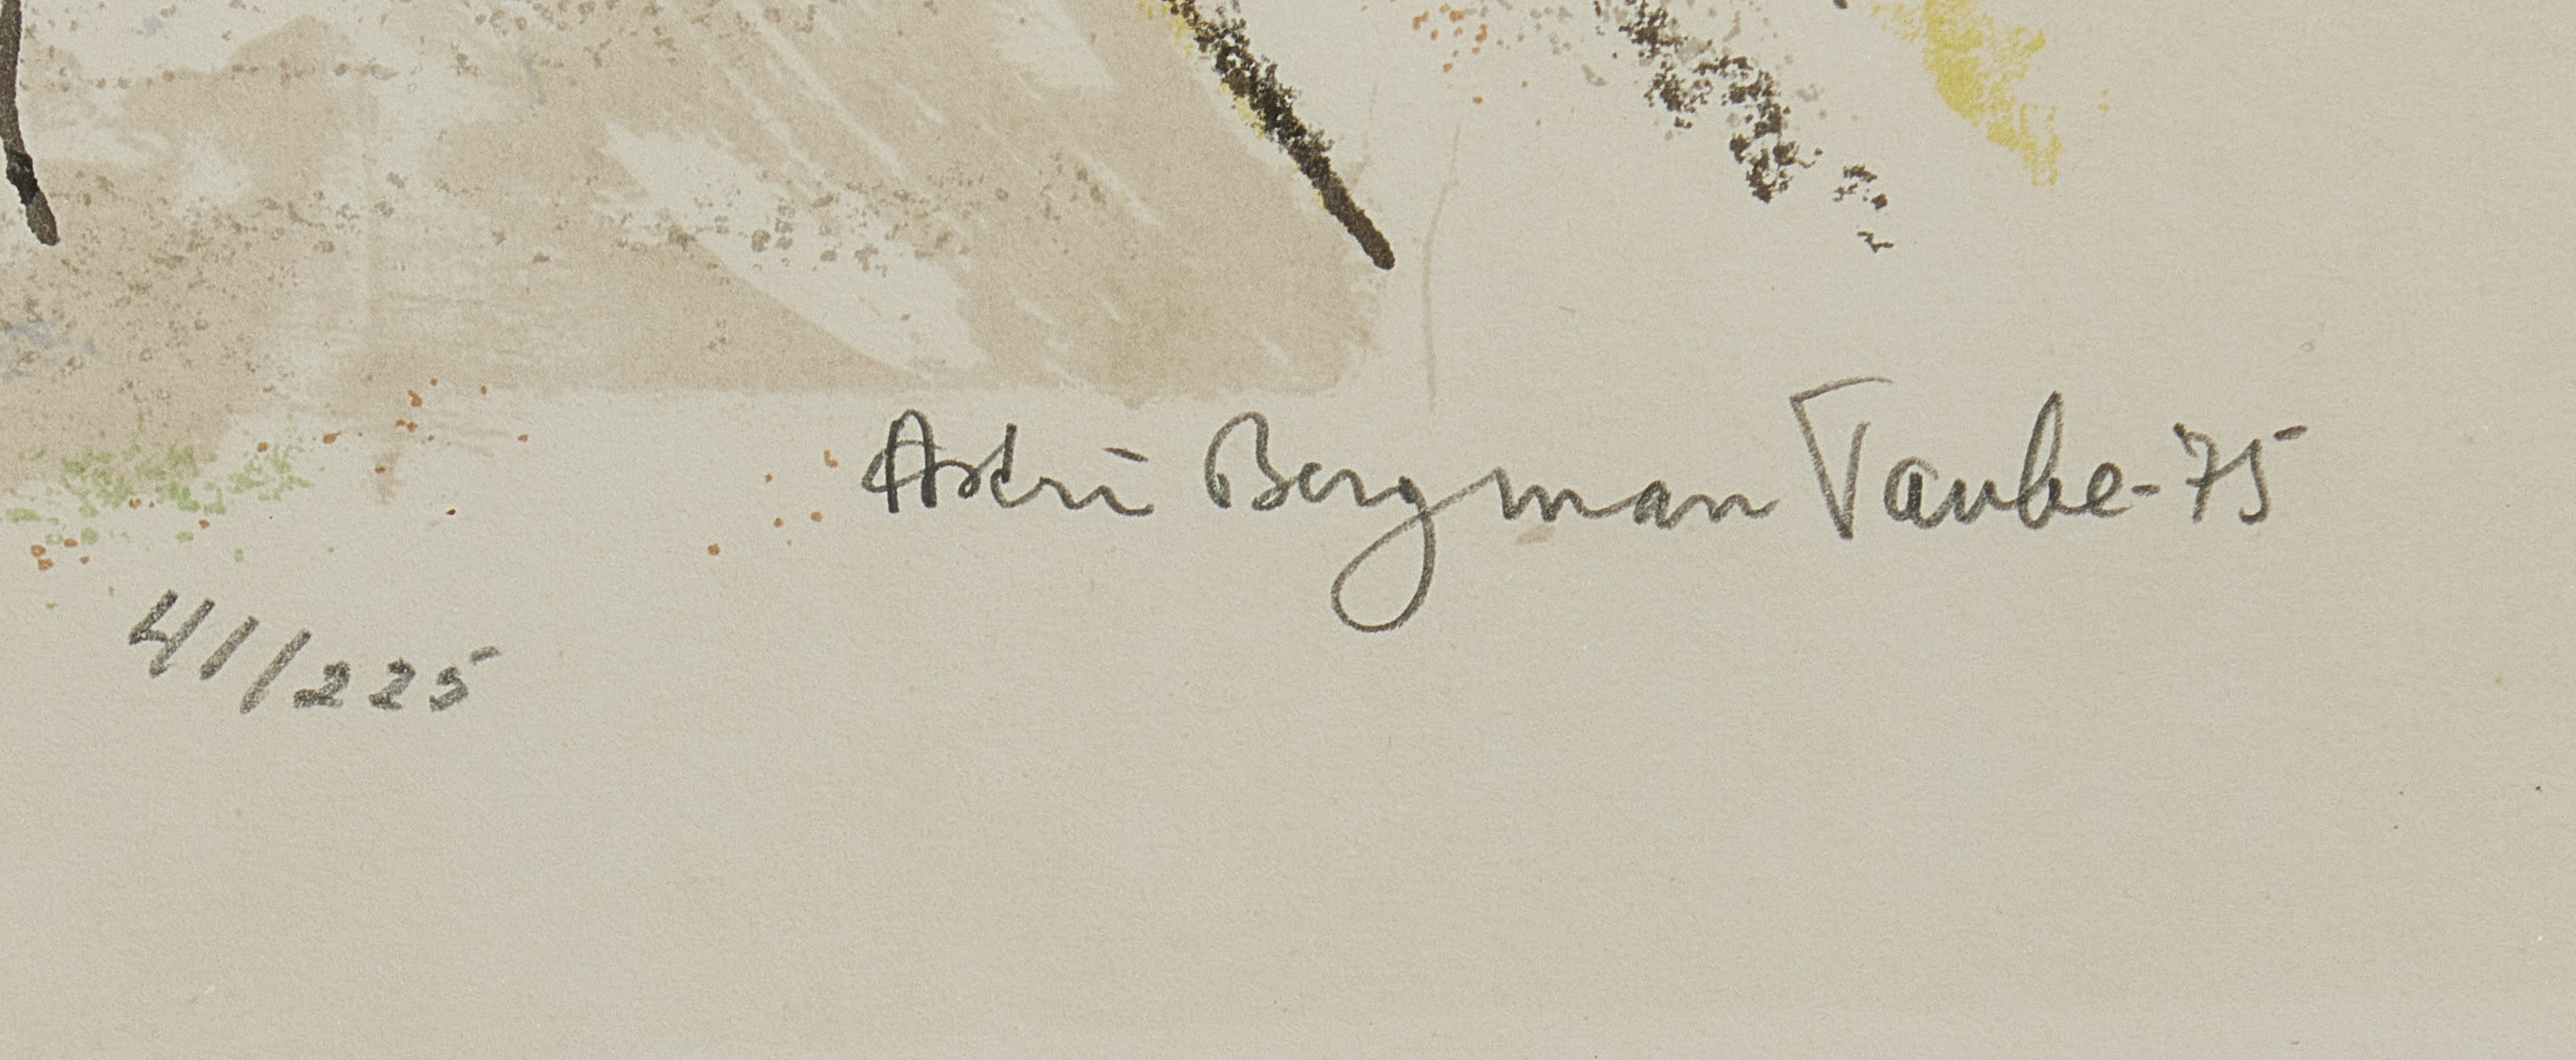 Astri Bergman Taube-75
41/225